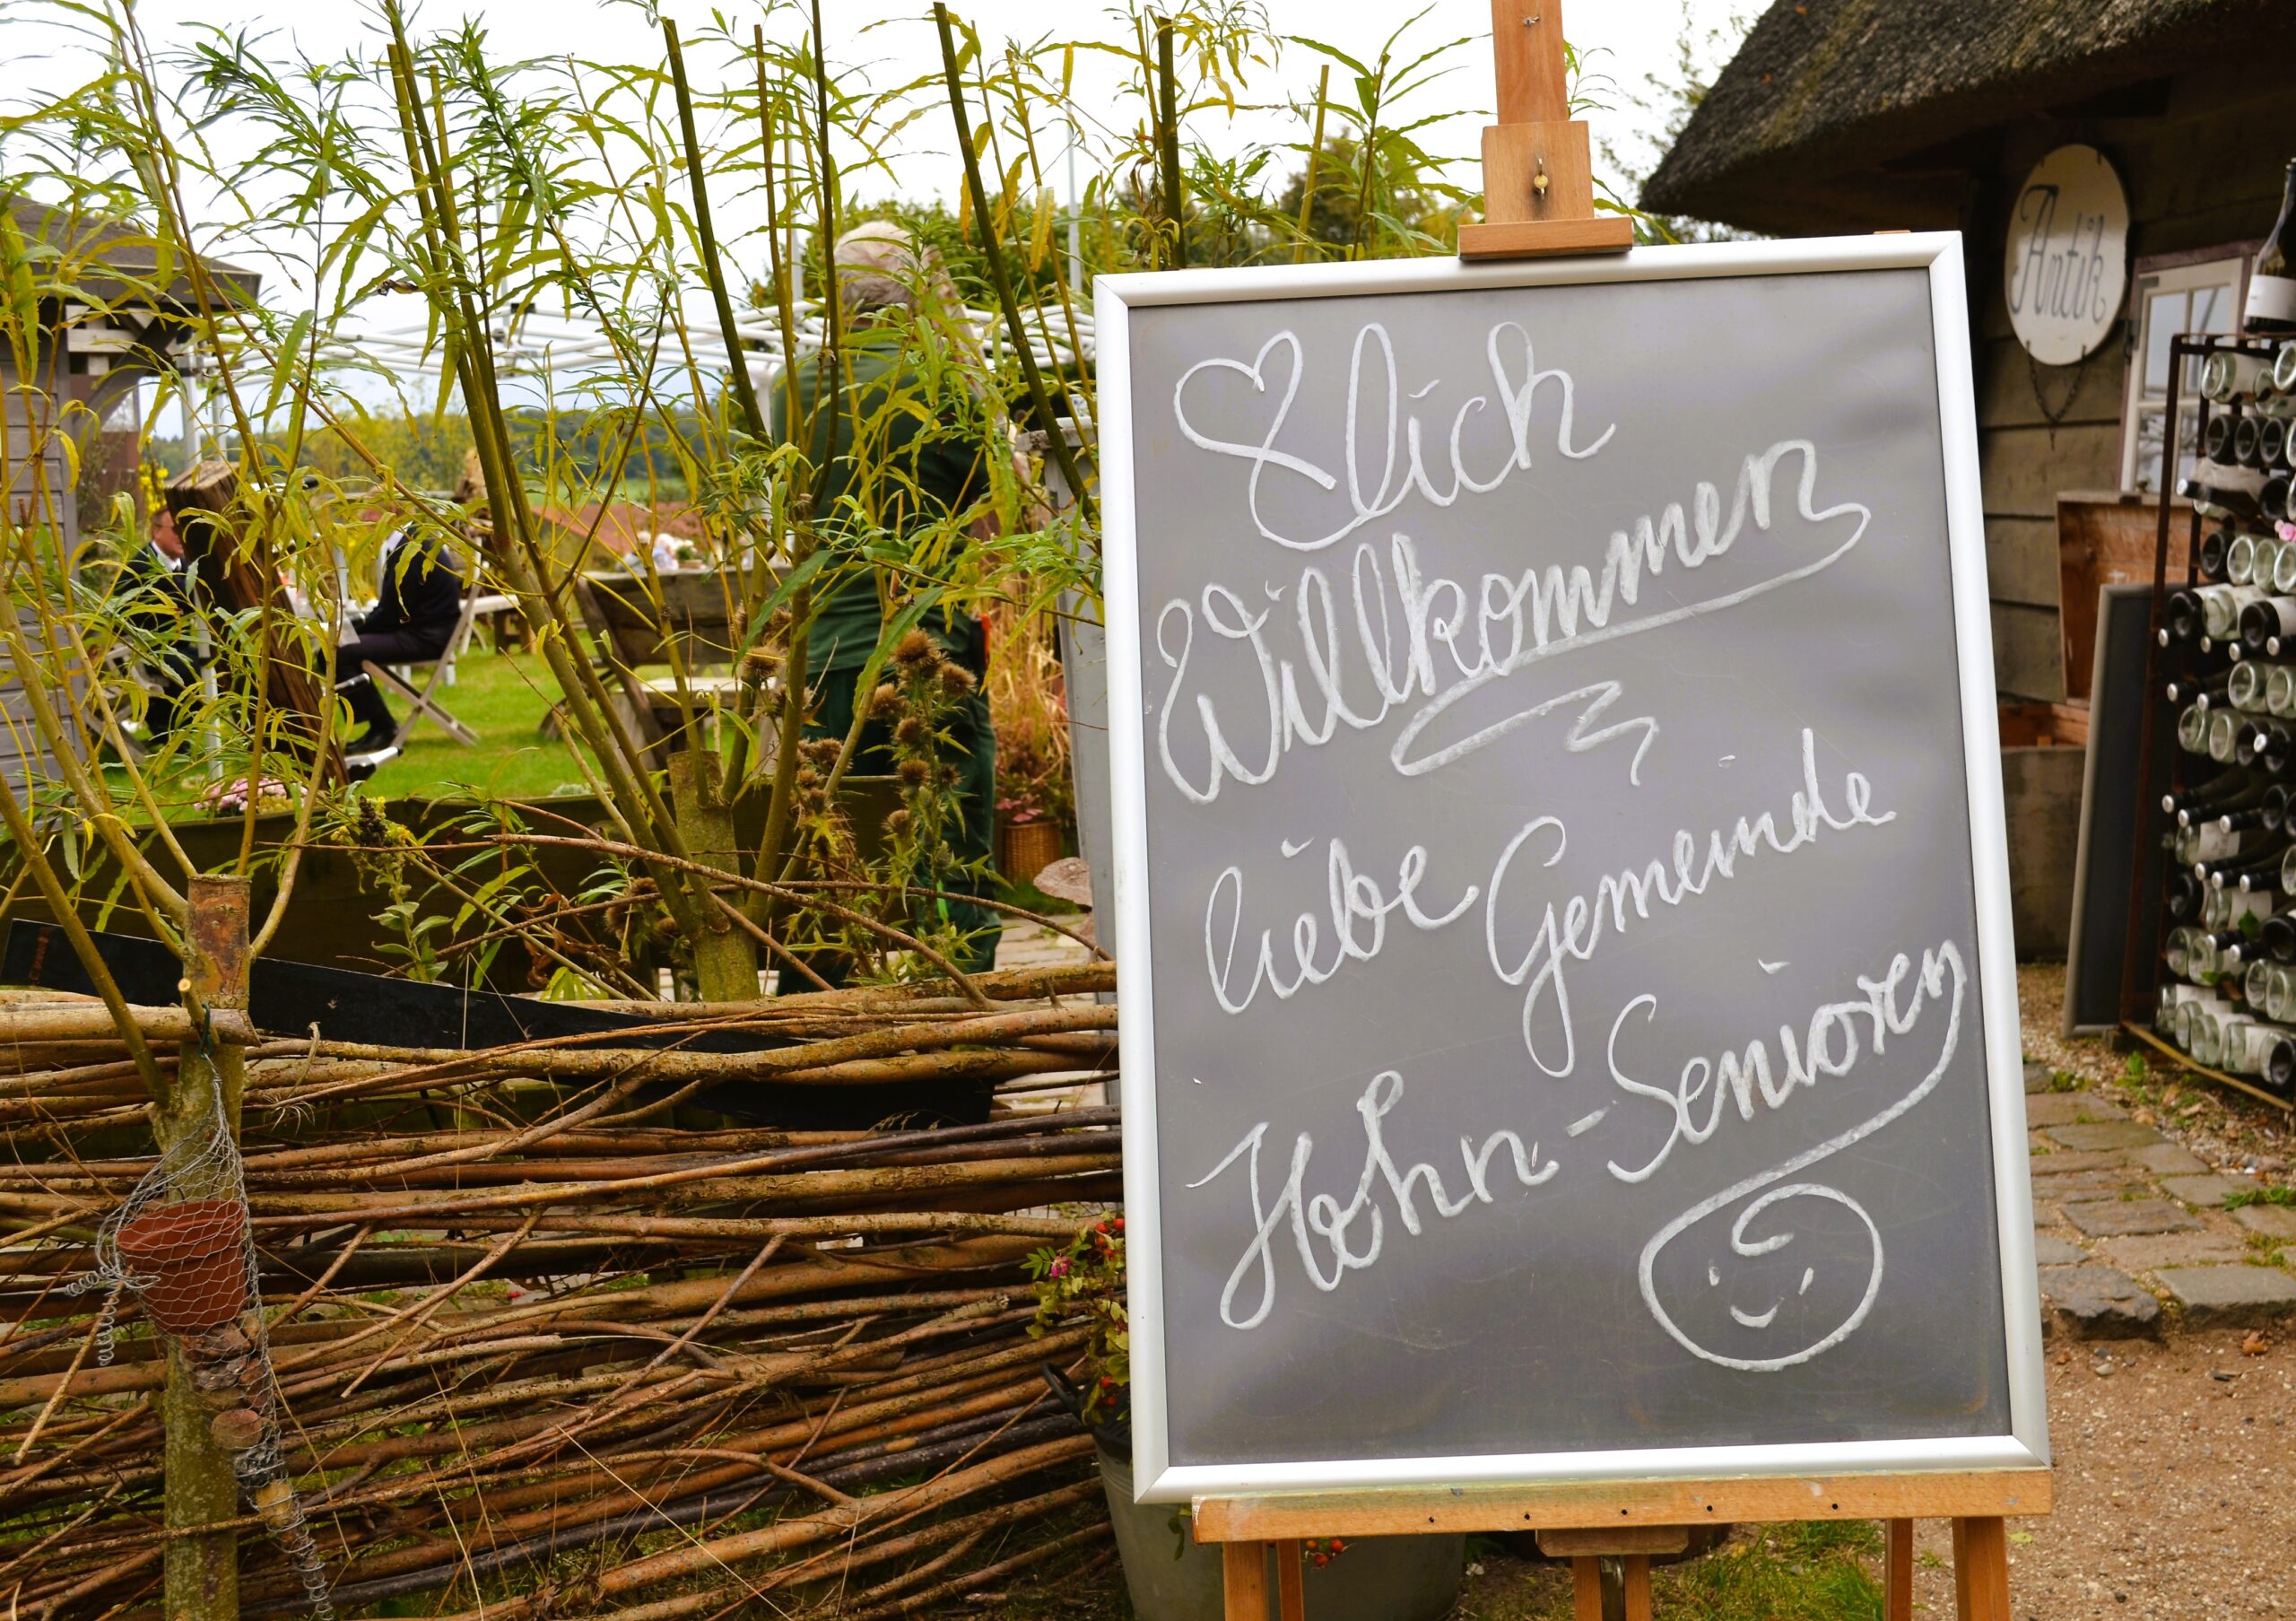 ♡lich
Willkommen
liebe Gemeinde
Hohn-Senioren
Antik